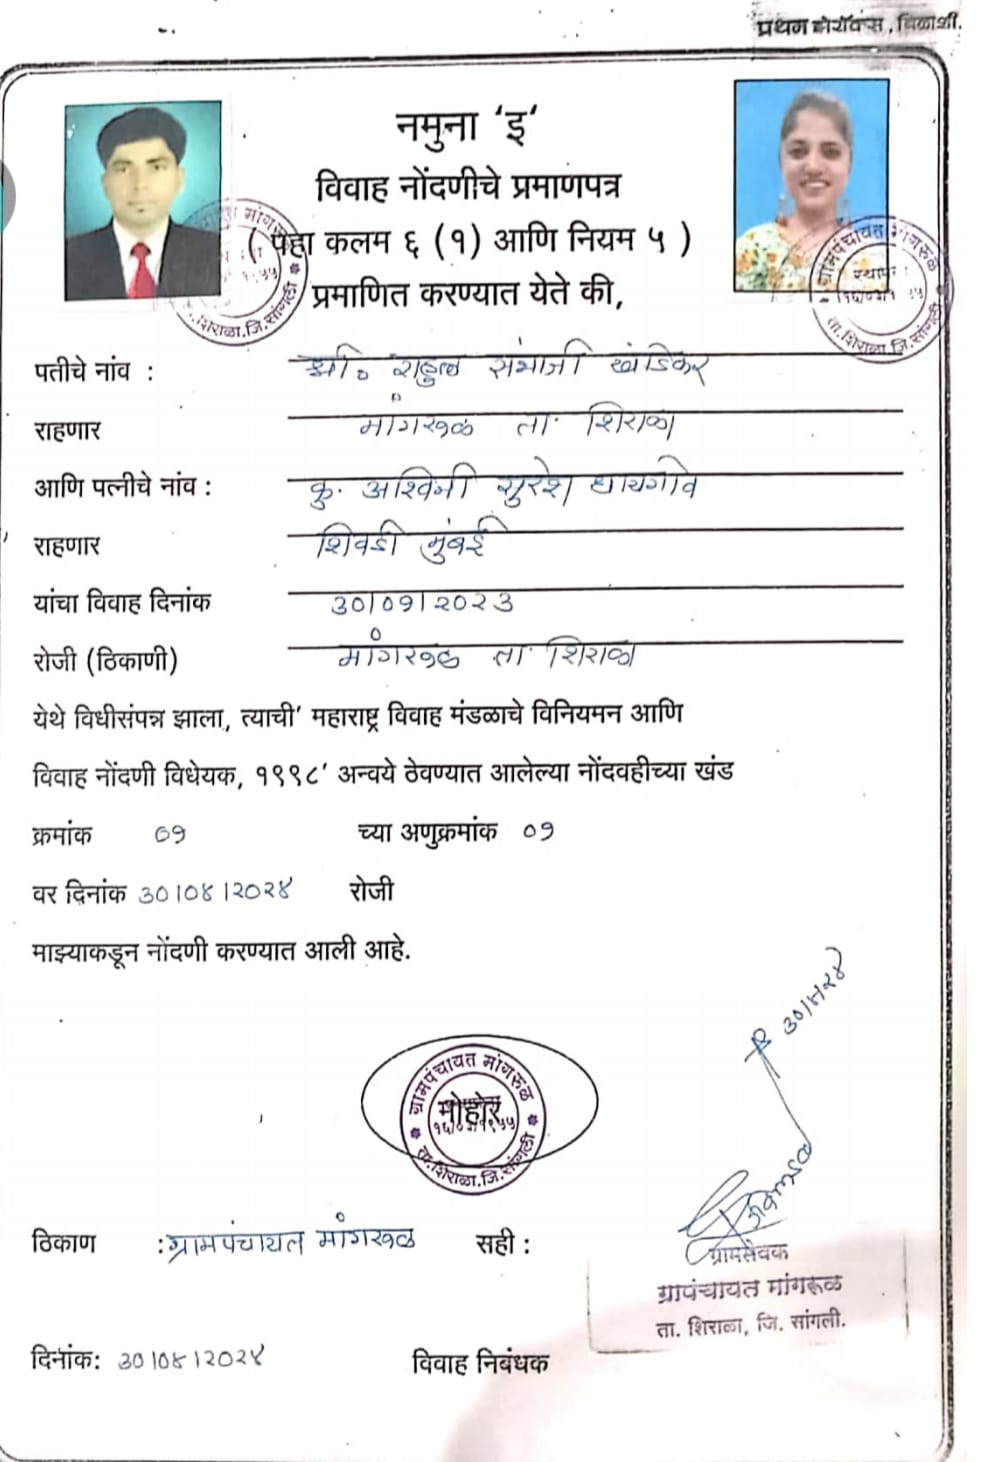 प्रथम झेरॉक्स, बिळाशी.
नमुना ‘इ‘
विवाह नोंदणीचे प्रमाणपत्र
( पहा कलम ६ (१) आणि नियम ५ )
प्रमाणित करण्यात येते की,
पतीचे नांव : श्री. राहुल संभाजी खंडिकर
राहणार मांगरूळ ता. शिराळा
आणि पत्नीचे नांव : कु. अश्विनी सुरेश
राहणार शिवडी मुंबई
यांचा विवाह दिनांक ३०/०१/२०२३
रोजी (ठिकाणी) मांगरूळ ता शिराळा
येथे विधीसंपन्न झाला, त्याची’ महाराष्ट्र विवाह मंडळाचे विनियमन आणि
विवाह नोंदणी विधेयक, १९९८’ अन्वये ठेवण्यात आलेल्या नोंदवहीच्या खंड
क्रमांक ०१ च्या अणुक्रमांक ०१
वर दिनांक ३०/०४/२०२४ रोजी
माझ्याकडून नोंदणी करण्यात आली आहे.
३०/४/२४
ग्रामपंचायत मांगरूळ
मोहोर
ता.शिराळा.जि.सांगली
ठिकाण :ग्रामपंचायत मांगरूळ सही :
ग्रामसेवक
ग्रापंचायत मांगरूळ
ता. शिराळा, जि. सांगली.
दिनांक: ३०/०४/२०२४ विवाह निबंधक